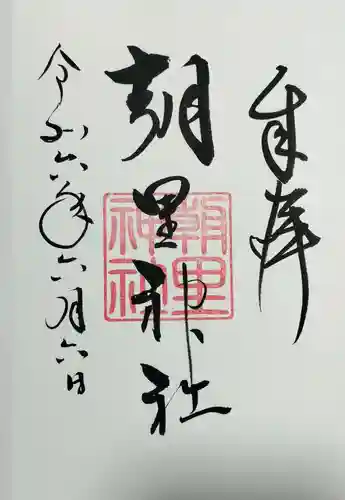 奉拝
朝里神社
朝里神社
令和六年六月六日